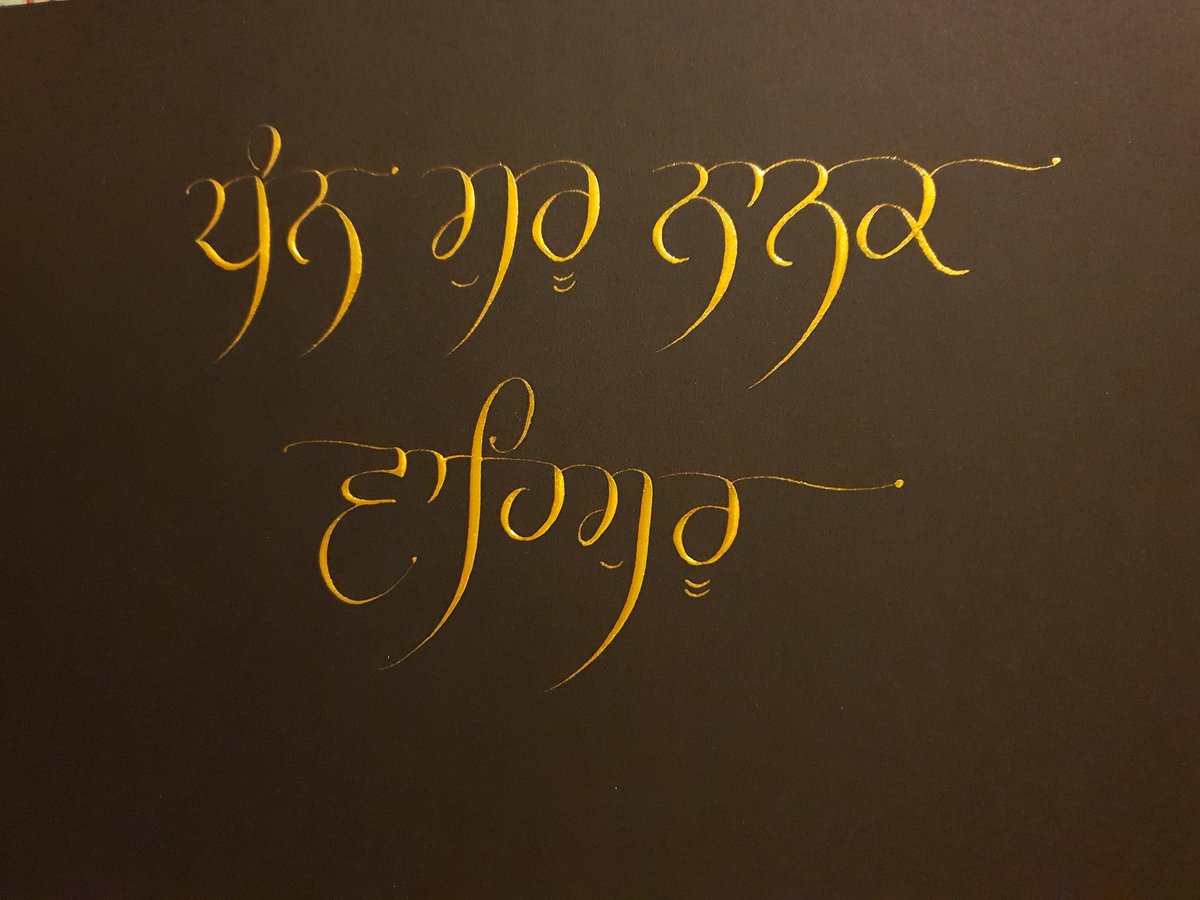 ਧੰਨ ਗੁਰੂ ਨਾਨਕ
ਵਾਹਿਗੁਰੂ